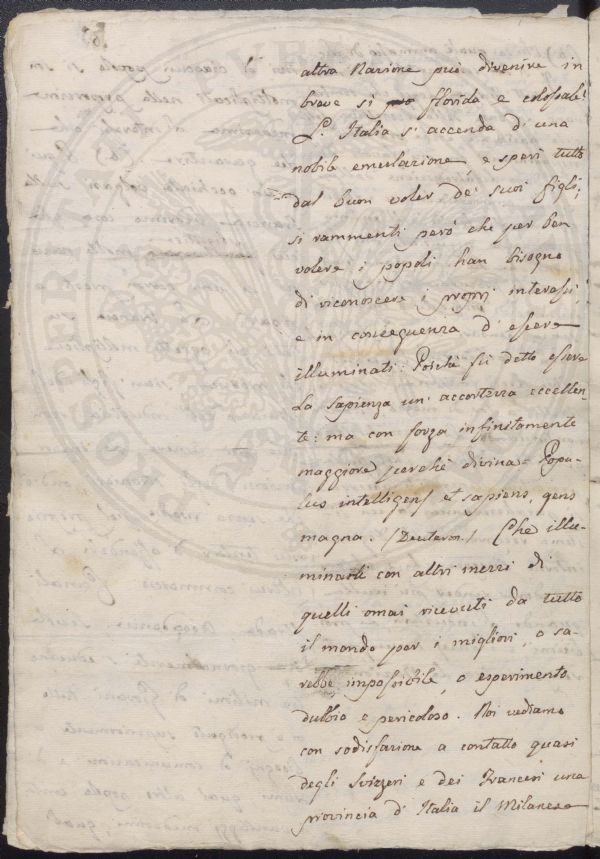 altra Nazione può divenire in
breve sì florida e colossale!
L'Italia s'accenda d'una
nobile emulazione, e speri tutto
dal buon voler de' suoi figli;
si rammenti però che per ben
volere i popoli han bisogno
di riconoscere i proprj interessi,
e in conseguenza d'essere
illuminati. Poichè fu detto essere
la sapienza un' accortezza eccellen-
te: ma con forza infinitamente
maggiore perchè divina = Popu-
lus intelligens et sapiens, gens
magna. (Deuteron.) Che illu-
minarli con altri mezzi di
quelli omai ricevuti da tutto
il mondo per i migliori, o sa-
rebbe impossibile, o esperimento
dubbio e pericoloso. Noi vediamo
con sodisfazione a contatto quasi
degli Svizzeri e dei Francesi una
provincia d'Italia il Milanese